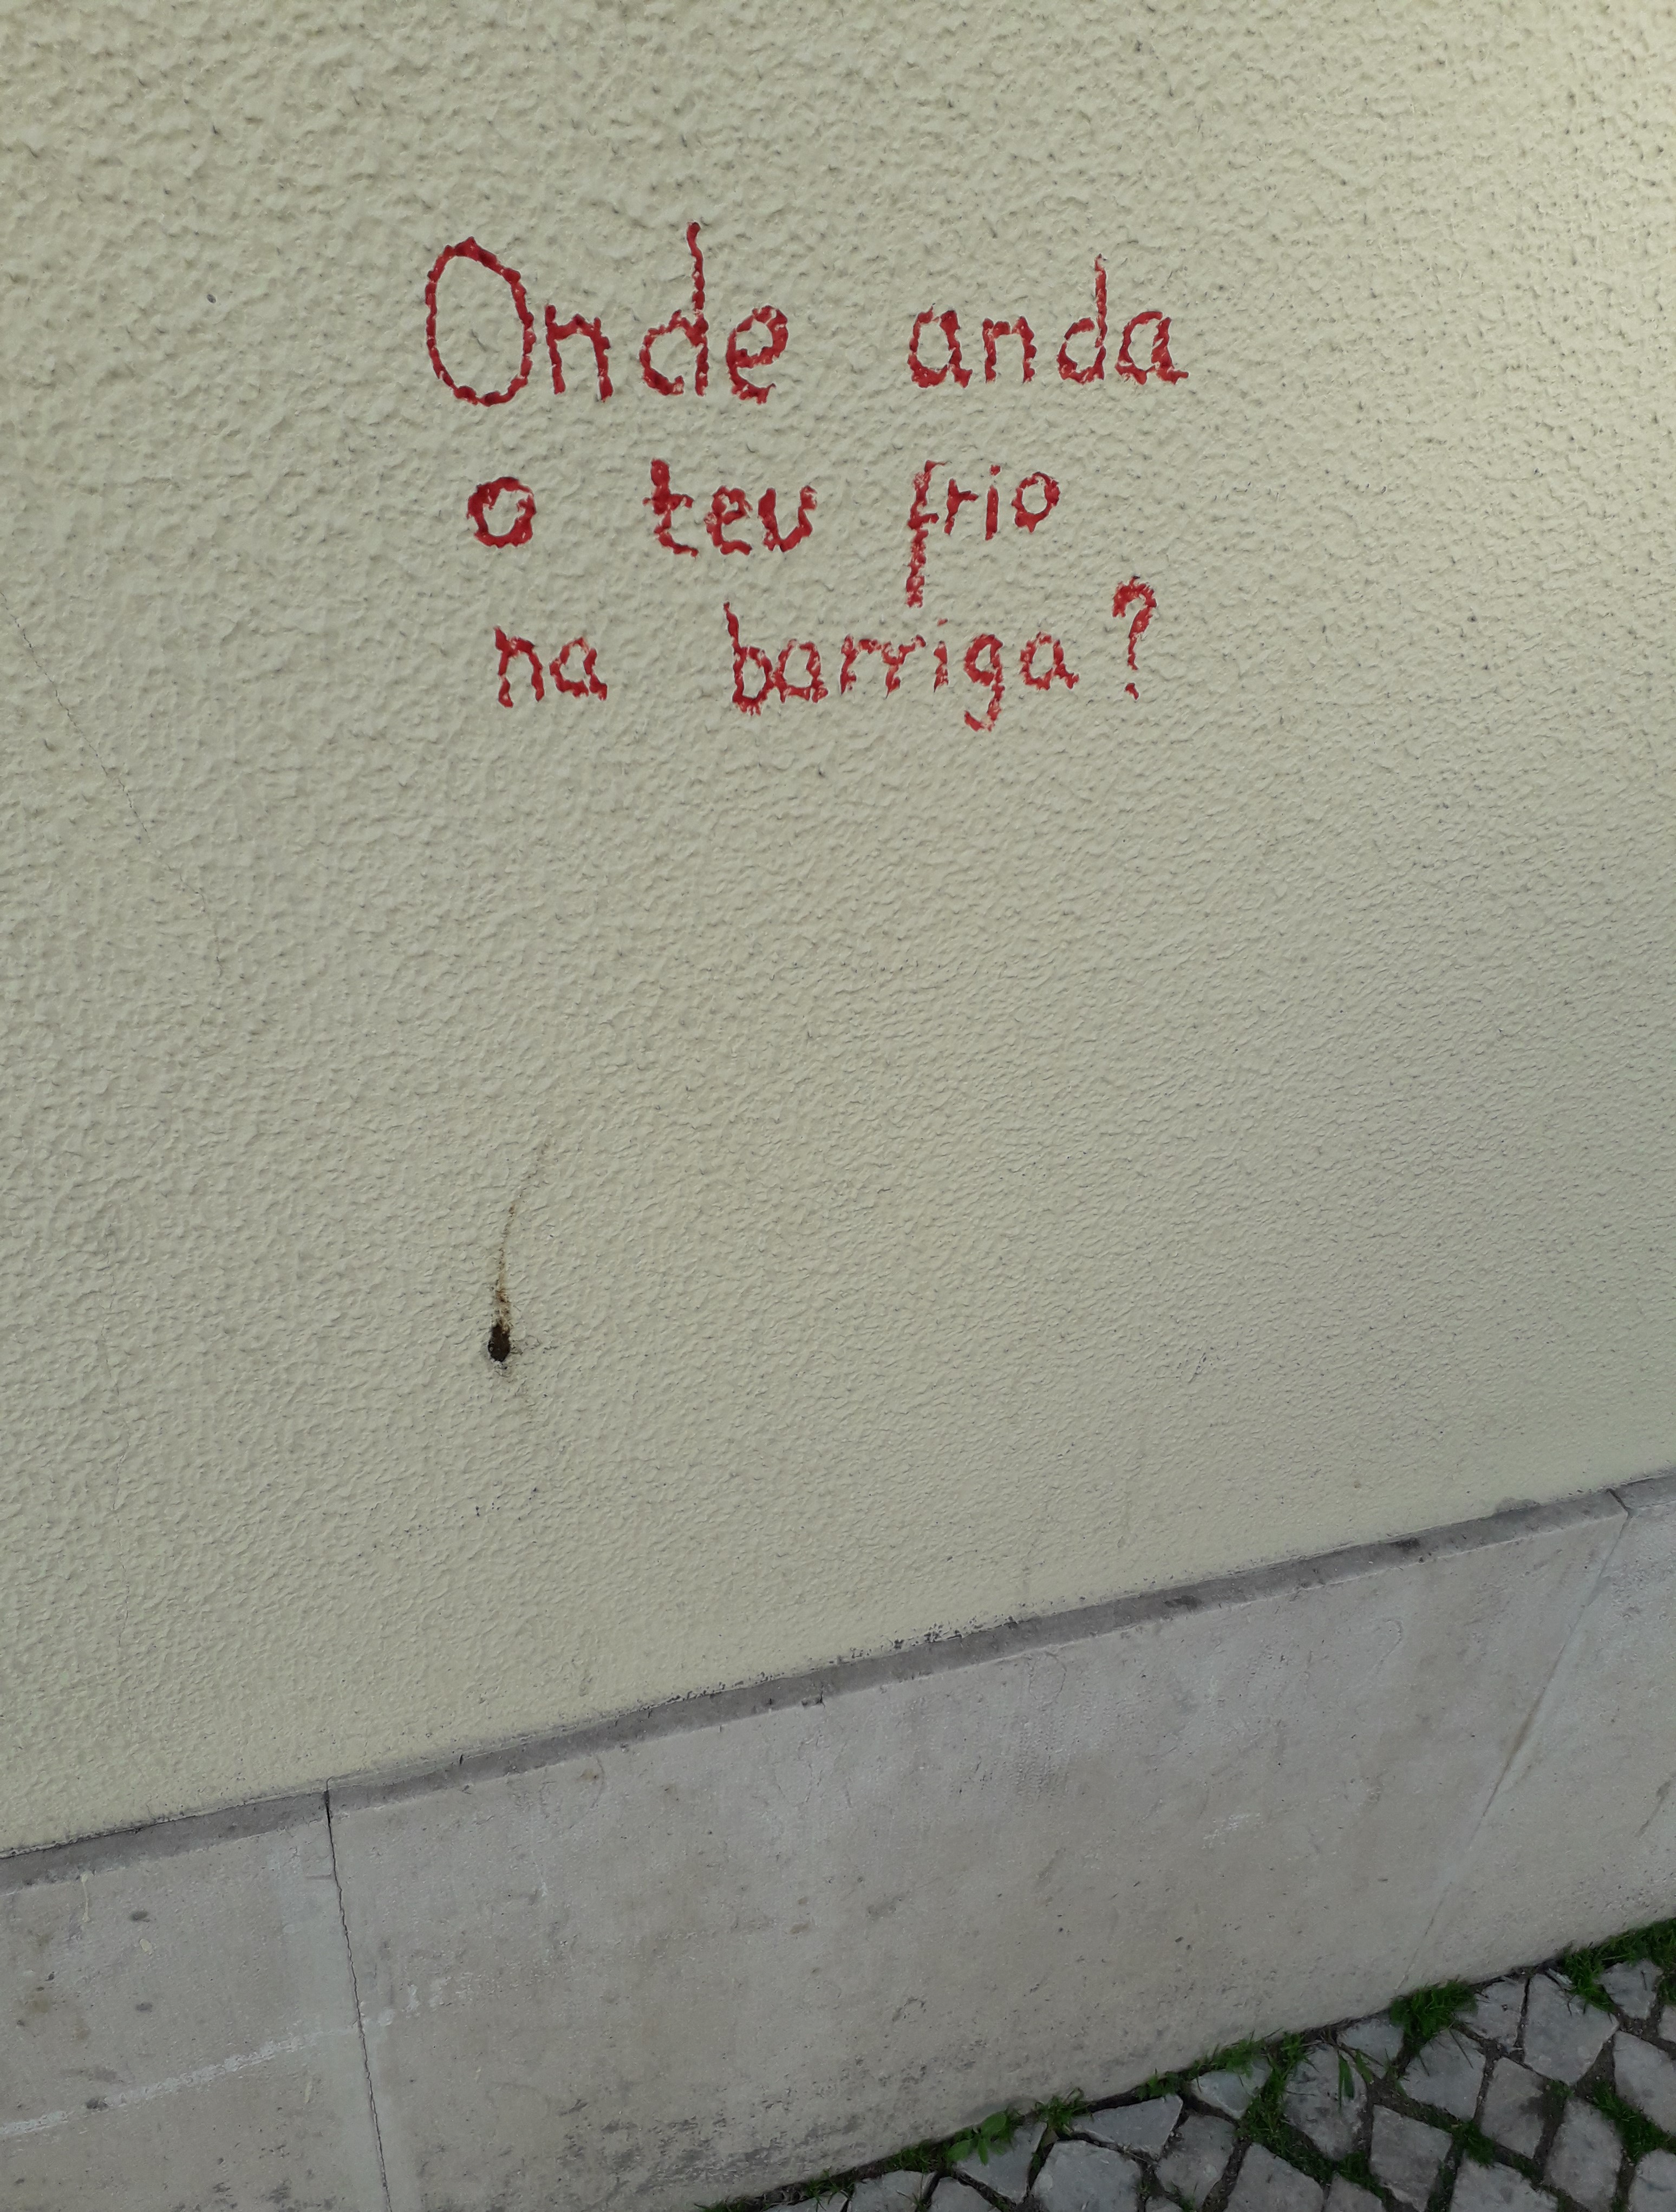 Onde anda
o teu frio
na barriga?